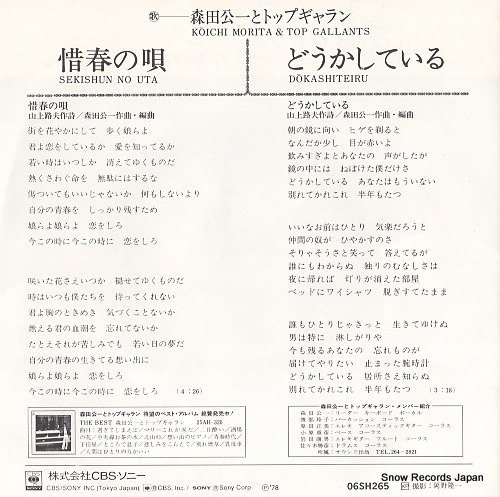 歌——森田公一とトップギャラン
KŌICHI MORITA & TOP GALLANTS
惜春の唄
SEKISHUN NO UTA
どうかしている
DŌKASHITEIRU
惜春の唄
山上路夫作詩／森田公一作曲・編曲
街を花やかにして 歩く娘らよ
君よ恋をしているか 愛を知ってるか
若い時はいつしか 消えてゆくものだ
熱くさわぐ命を 無駄にはするな
傷ついてもいいじゃないか 何もしないより
自分の青春を しっかり残すため
娘らよ娘らよ 恋をしろ
今この時に今この時に 恋をしろ
咲いた花さえいつか 褪せてゆくものだ
時はいつも僕たちを 待ってくれない
君よ胸のときめき 気づくことないか
燃える君の血潮を 忘れてないか
たとえそれが苦しみでも 若い日の夢だ
自分の青春の生きてる想い出に
娘らよ娘らよ 恋をしろ
今この時に今この時に 恋をしろ (4:26)
どうかしている
山上路夫作詩／森田公一作曲・編曲
朝の鏡に向い ヒゲを剃ると
なんだか少し 目が赤いよ
飲みすぎよとあなたの 声がしたが
鏡の中には ねぼけた僕だけさ
どうかしている あなたはもういない
別れてかれこれ 半年もたつ
いいなお前はひとり 気楽だろうと
仲間の奴が ひやかすのさ
そりゃそうさと笑って 答えてるが
誰にもわからぬ 独りのむなしさは
夜に帰れば 灯りが消えた部屋
ベッドにワイシャツ 脱ぎすてたまま
誰もひとりじゃきっと 生きてゆけぬ
男は特に 淋しがりや
今も残るあなたの 忘れものが
届けてやりたい 止まった腕時計
どうかしている 居所さえ知らぬ
別れてかれこれ 半年もたつ (3:18)
森田公一とトップギャラン 待望のベスト・アルバム 絶賛発売中！
THE BEST 森田公一とトップギャラン 25AH-320
森田公一とトップギャラン・メンバー紹介
森田公一：リーダー キーボード ボーカル
所属：サウンド出版 TEL.264-2821
株式会社CBS・ソニー
CBS/SONY INC.(Tokyo Japan)
06SH265
Snow Records Japan